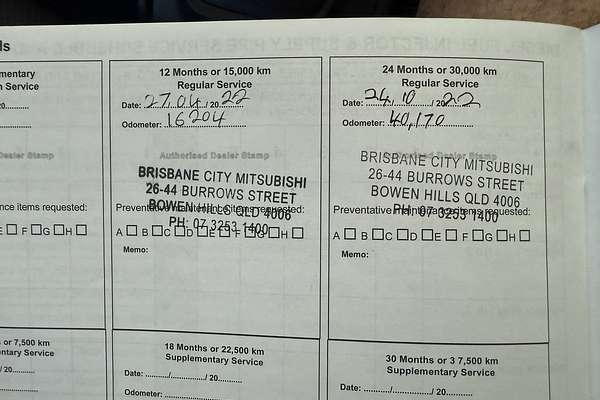 ds
12 Months or 15,000 km
Regular Service
Date: 27/04/2022
Odometer: 16204
Authorised Dealer Stamp
BRISBANE CITY MITSUBISHI
26-44 BURROWS STREET
BOWEN HILLS QLD 4006
PH: 07 3253 1400
Preventative maintenance items requested:
A B C D E F G H
Memo:
24 Months or 30,000 km
Regular Service
Date: 24/10/2022
Odometer: 40,170
Authorised Dealer Stamp
BRISBANE CITY MITSUBISHI
26-44 BURROWS STREET
BOWEN HILLS QLD 4006
PH: 07 3253 1400
Preventative maintenance items requested:
A B C D E F G H
Memo:
mentary
n Service
20
Dealer Stamp
nce items requested:
E F G H
or 7,500 km
entary Service
/ 20
18 Months or 22,500 km
Supplementary Service
Date: / / 20
Odometer:
30 Months or 3 7,500 km
Supplementary Service
Date: / / 20